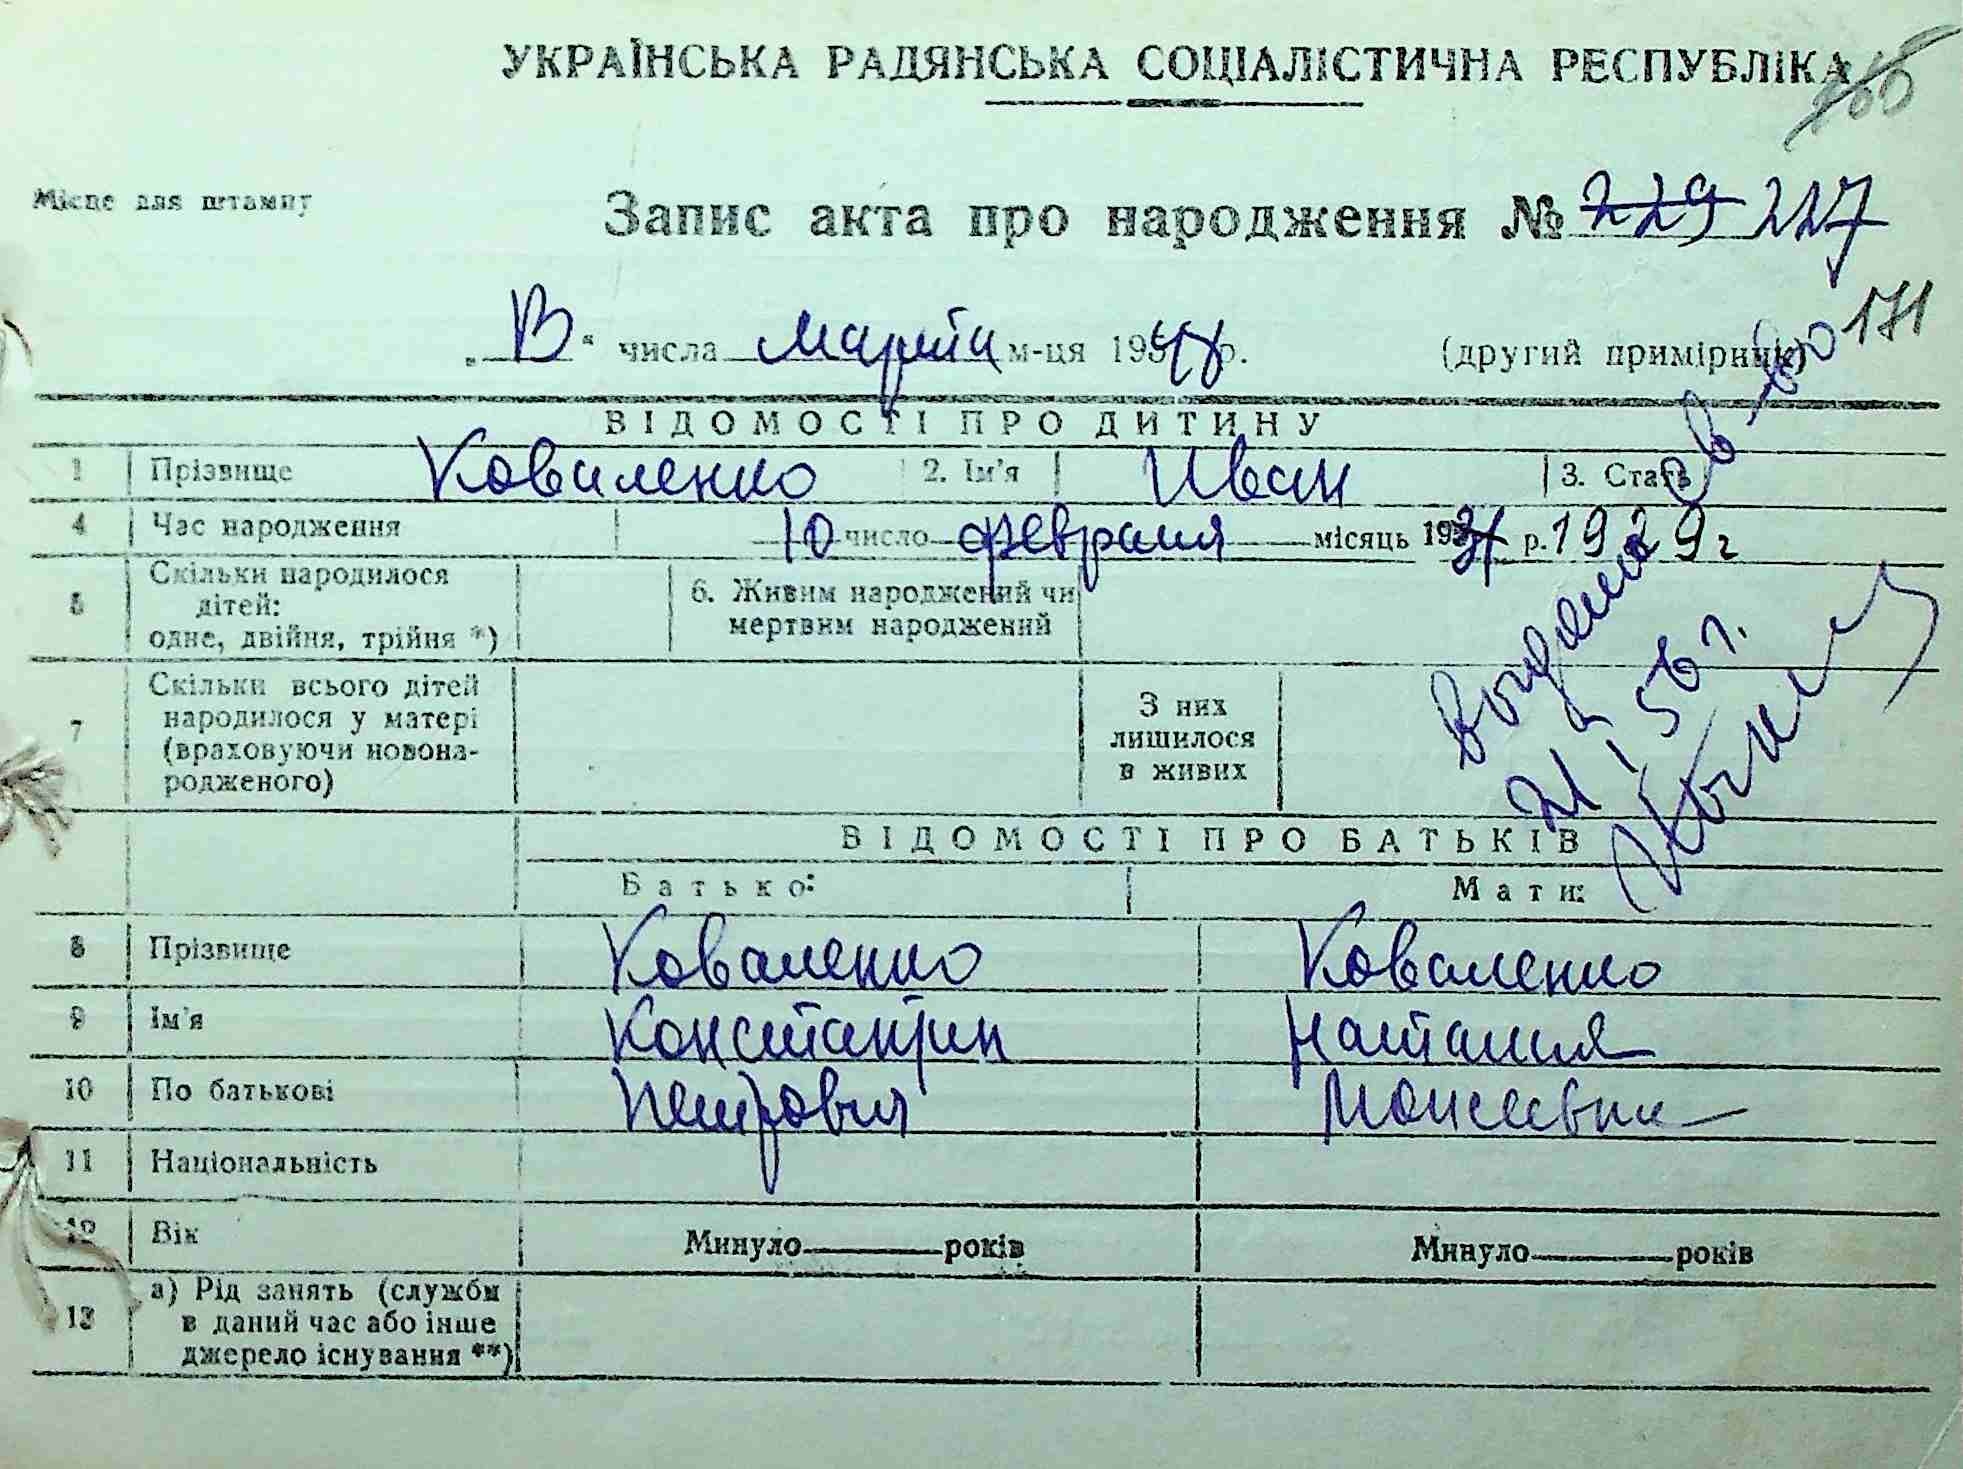 УКРАЇНСЬКА РАДЯНСЬКА СОЦІАЛІСТИЧНА РЕСПУБЛІКА
Місце для штампу
Запис акта про народження № 229 217
„ В “ числа марта м-ця 1948 р. (другий примірник)
ВІДОМОСТІ ПРО ДИТИНУ
1 Прізвище Коваленко 2. Ім'я Иван 3. Стать
4 Час народження 10 число февраля місяць 19 р. 1929 г
5 Скільки народилося дітей: одне, двійня, трійня *) 6. Живим народжений чи мертвим народжений
7 Скільки всього дітей народилося у матері (враховуючи новонародженого) З них лишилося в живих
Выдано св-во 171
21/I 56 г.
ВІДОМОСТІ ПРО БАТЬКІВ
Батько: Мати:
8 Прізвище Коваленко Коваленко
9 Ім'я Константин Наталия
10 По батькові Петрович Моисеевна
11 Національність
12 Вік Минуло років Минуло років
13 а) Рід занять (служби в даний час або інше джерело існування **)